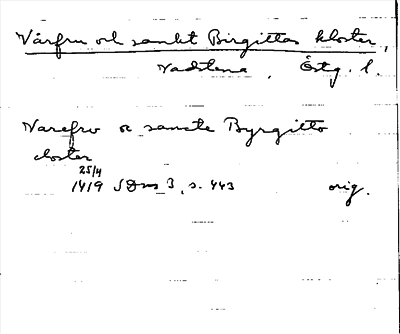 Vårfru och sankt Birgittas kloster,
Vadstena, Östg. l.
Varefrv oc sancte Byrgitto
closter
25/4
1419 SDns 3, s. 443 orig.